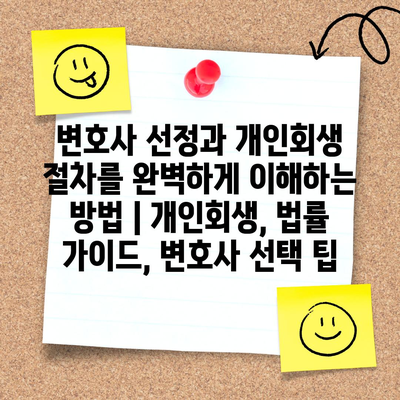 변호사 선정과 개인회생
절차를 완벽하게 이해하는
방법 | 개인회생, 법률
가이드, 변호사 선택 팁